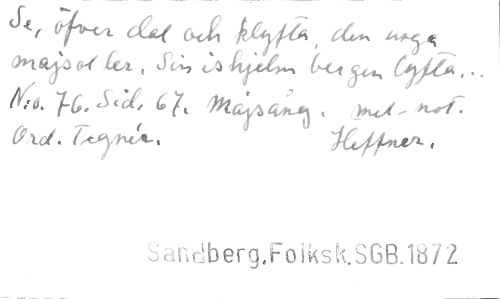 Se, öfver dal och klyfta, den unga
majsol ler. Sin ishjelm bergen lyfta...
N:o. 76. Sid. 67. Majsång. mel-not.
Ord. Tegnér. Heffner.
Sandberg.Folksk.SGB.1872